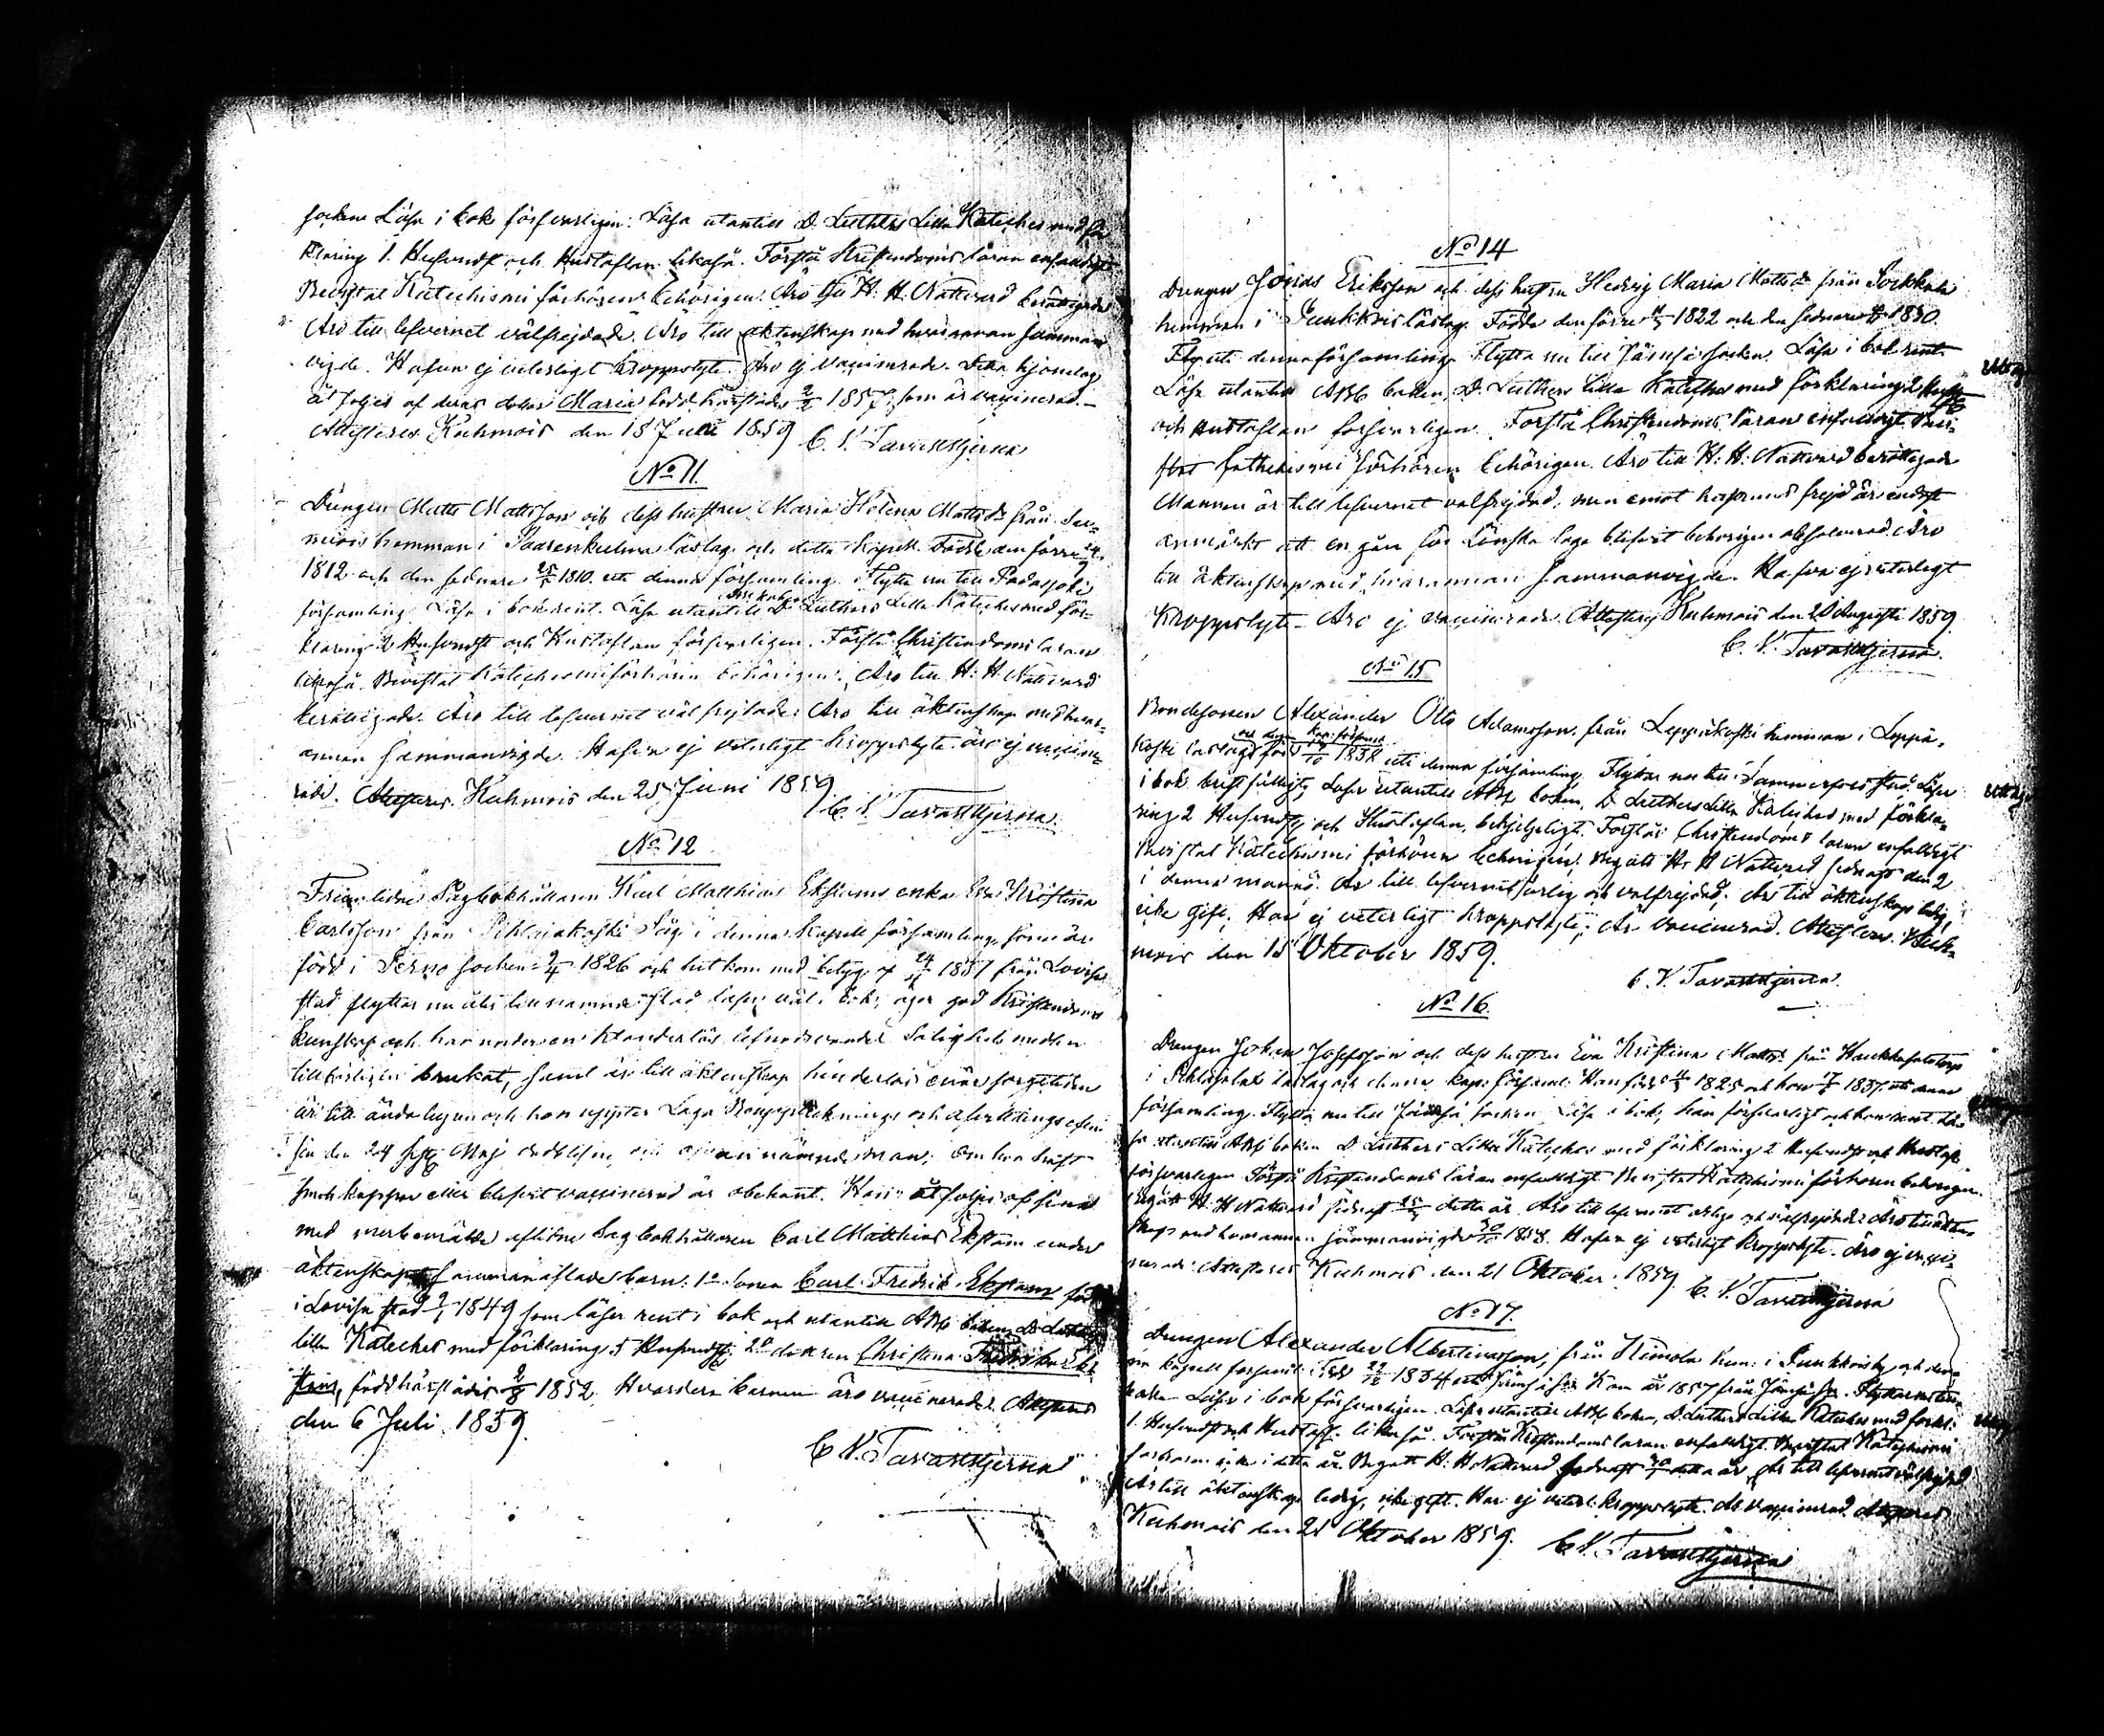 socken Läsa i bok försvarligen. Läsa utantill D. Luthers Lilla Kateches med för
klaring 1. Hufvudst och Hustaflan likaså. Förstå Kristendomsläran enfaldigt
Bevistat Katechismi förhören behörigen. Äro till H. H. Nattvard berättigade
Äro till lefvernet välfrejdade. Äro till äktenskap med hvarannan samman
vigde. Hafva ej veterligt kroppslyte. Äro ej vaccinerade. Detta hjonelag
åtföljes af deras dotter Maria född härstädes 1857, som är vaccinerad. –
Attesteras Kuhmois den 18 Juni 1859 C. V. Tavaststjerna
No 11.
Drängen Matts Mattsson och dess hustru Maria Helena Mattsdr från
hemman i Saarenkulma läslag och detta kapell. Födde den förre
1812 och den sednare 1810 uti denna församling. Flytta nu till Padasjoki
församling. Läsa i bok rent. Läsa utantill Dr Luthers Lilla Kateches med för-
klaring 2 Hufvudst och Hustaflan försvarligen. Förstå Christendomsläran
likaså. Bevistat Katechismi förhören behörigen. Äro till H. H. Nattvard
berättigade. Äro till lefvernet välfrejdade. Äro till äktenskap med hvar-
annan sammanvigde. Hafva ej veterligt kroppslyte. äro ej vaccine-
rade. Attesteras. Kuhmois den 25 Juni 1859
C. V. Tavaststjerna.
No 12
Framlidne Sågbokhållaren Karl Matthias Ekstams enka Eva Kristina
Carlsson från Pihlajakoski Såg i denna kapell församling, som är
född i Perno socken 1826 och hitkom med betyg af 1857 från Lovisa
stad flyttar nu åter till nämnde stad, läser väl i bok, äger god Kristendoms
kunskap och har under en klanderlös lefnadsvandel Salighets medlen
tillbörligen brukat, samt är till äktenskap hinderlös enär sorgetiden
är till ända lupen och hon
den 24 Maj om hon haft
smittkoppor eller blifvit vaccinerad är obekant. Hon åtföljes af sina
med merbemälde aflidne Sagbokhållaren Carl Matthias Ekstam under
äktenskapet sammanaflade barn: 1o Sonen Carl Fredrik Ekstam född
i Lovisa stad 1849 som läser rent i bok och utantill ABC boken, Dr Luthers
lilla Kateches med förklaring 5 Hufvudst; 2o dottren Christina
född härstädes 1852. Hvardera barnen äro vaccinerade. Attesteras
den 6 Juli 1859.
C. V. Tavaststjerna
No 14
Drängen Jonas Eriksson och dess hustru Hedvig Maria Mattsdr från
hemman i Läslag. Födde den förre 1822 och den sednare 1830.
uti denna församling. Flytta nu till Jämsä socken. Läsa i bok rent.
Läsa utantill ABC boken, D. Luthers Lilla Kateches med förklaring 2 Hufvudst
och Hustaflan försvarligen. Förstå Christendoms läran enfaldigt. Bevi-
stat Kathekismi förhören behörigen. Äro till H. H. Nattvard berättigade
Mannen är till lefvernet välfrejdad, men emot hustruns frejd är endast
anmärkt att en gång för Lönska läge blifvit behörigen absolverad. Äro
till äktenskap med hvarannan sammanvigde. Hafva ej veterligt
Kroppslyte. Äro ej vaccinerade. Attesteras Kuhmois den 20 Augusti 1859.
C. V. Tavaststjerna.
No 15
Bondesonen Alexander Otto Adamsson från Leppäkoski hemman i Leppä-
koski läslag och denna kap: församl född 1838 uti denna församling. Flyttar nu till Tammerfors stad. Läser
i bok bristfälligt, Läser utantill ABC boken, D Luthers Lilla Kateches med förkla-
ring 2 Hufvudst och Hustaflan, behjelpligt. Förstår Christendoms läran enfaldigt
Bevistat Katechismi förhören behörigen. Begått H. H. Nattvard sednast den 2
i denna månad. Är till lefvernet ärlig och välfrejdad. Är till äktenskap ledig,
icke gift. Har ej veterligt kroppslyte. Är vaccinerad. Attesteras. Kuh-
mois den 15 Oktober 1859.
C. V. Tavaststjerna.
No 16.
Drängen Johan Josefsson och dess hustru Eva Kristina Mattsdr från
i läslag och denna kap: församl: Han född 1825 och hon 1837 uti denna
församling. Flytta nu till Jämsä socken. Läsa i bok, han försvarligt och hon rent. Lä-
sa utantill ABC boken D Luthers Lilla Kateches med förklaring 2 Hufvudst och Hustafl.
försvarligen. Förstå Kristendoms läran enfaldigt. Bevistat Katechismi förhören behörigen.
Begått H. H. Nattvard sednast detta år. Äro till lefvernet ärlige och välfrejdade. Äro till äkten-
skap med hvarannan sammanvigde 1858. Hafva ej veterligt kroppslyte. Äro ej vacci-
nerade. Attesteras Kuhmois den 21 Oktober 1859. C. V. Tavaststjerna
No 17.
Drängen Alexander Albertinasson, från Nimola hem: i och denna
kapell församl: Född 1834 uti Jämsä Kom år 1857 från Jämsä
Läser i bok försvarligen. Läser utantill ABC boken, D. Luthers Lilla Kateches med förkl:
1. Hufvudst och Hustafl. likaså. Förstår Kristendomsläran enfaldigt. Bevistat Katechismi
förhören icke i detta år. Begått H. H. Nattvard sednast detta år. Är till lefvernet välfrejdad
Är till äktenskap ledig, icke gift. Har ej veterl: kroppslyte. Är vaccinerad. Attesteras
Kuhmois den 21 Oktober 1859. C. V. Tavaststjerna